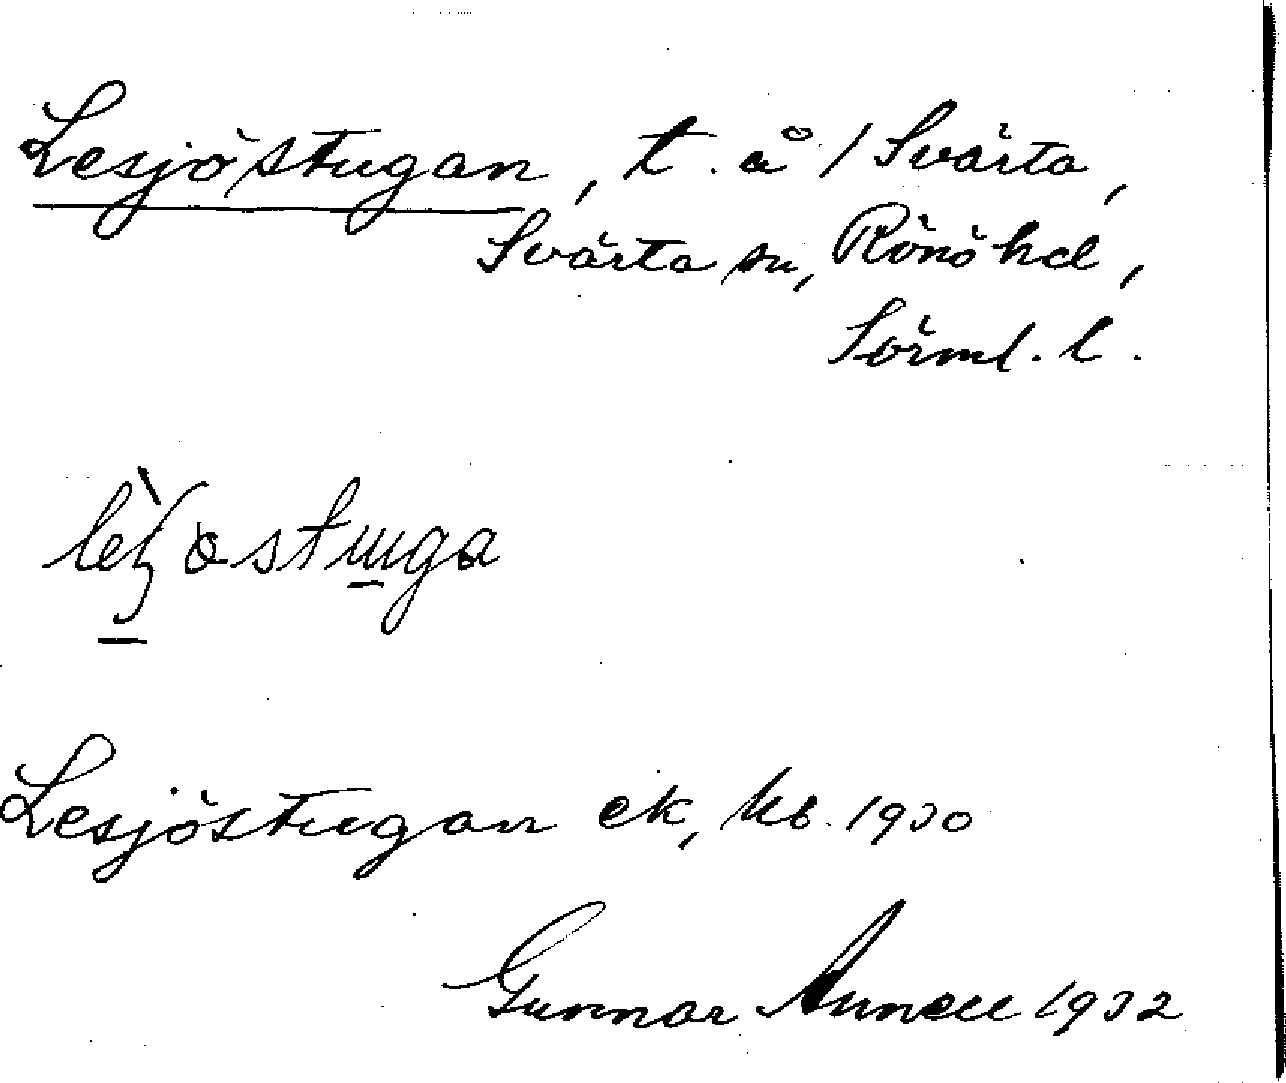 Lesjöstugan, t. å / Svärta,
Svärta sn, Rönö hd,
Sörml. l.
Lesjöstugan ek, kb. 1930
Gunnar Annell 1932